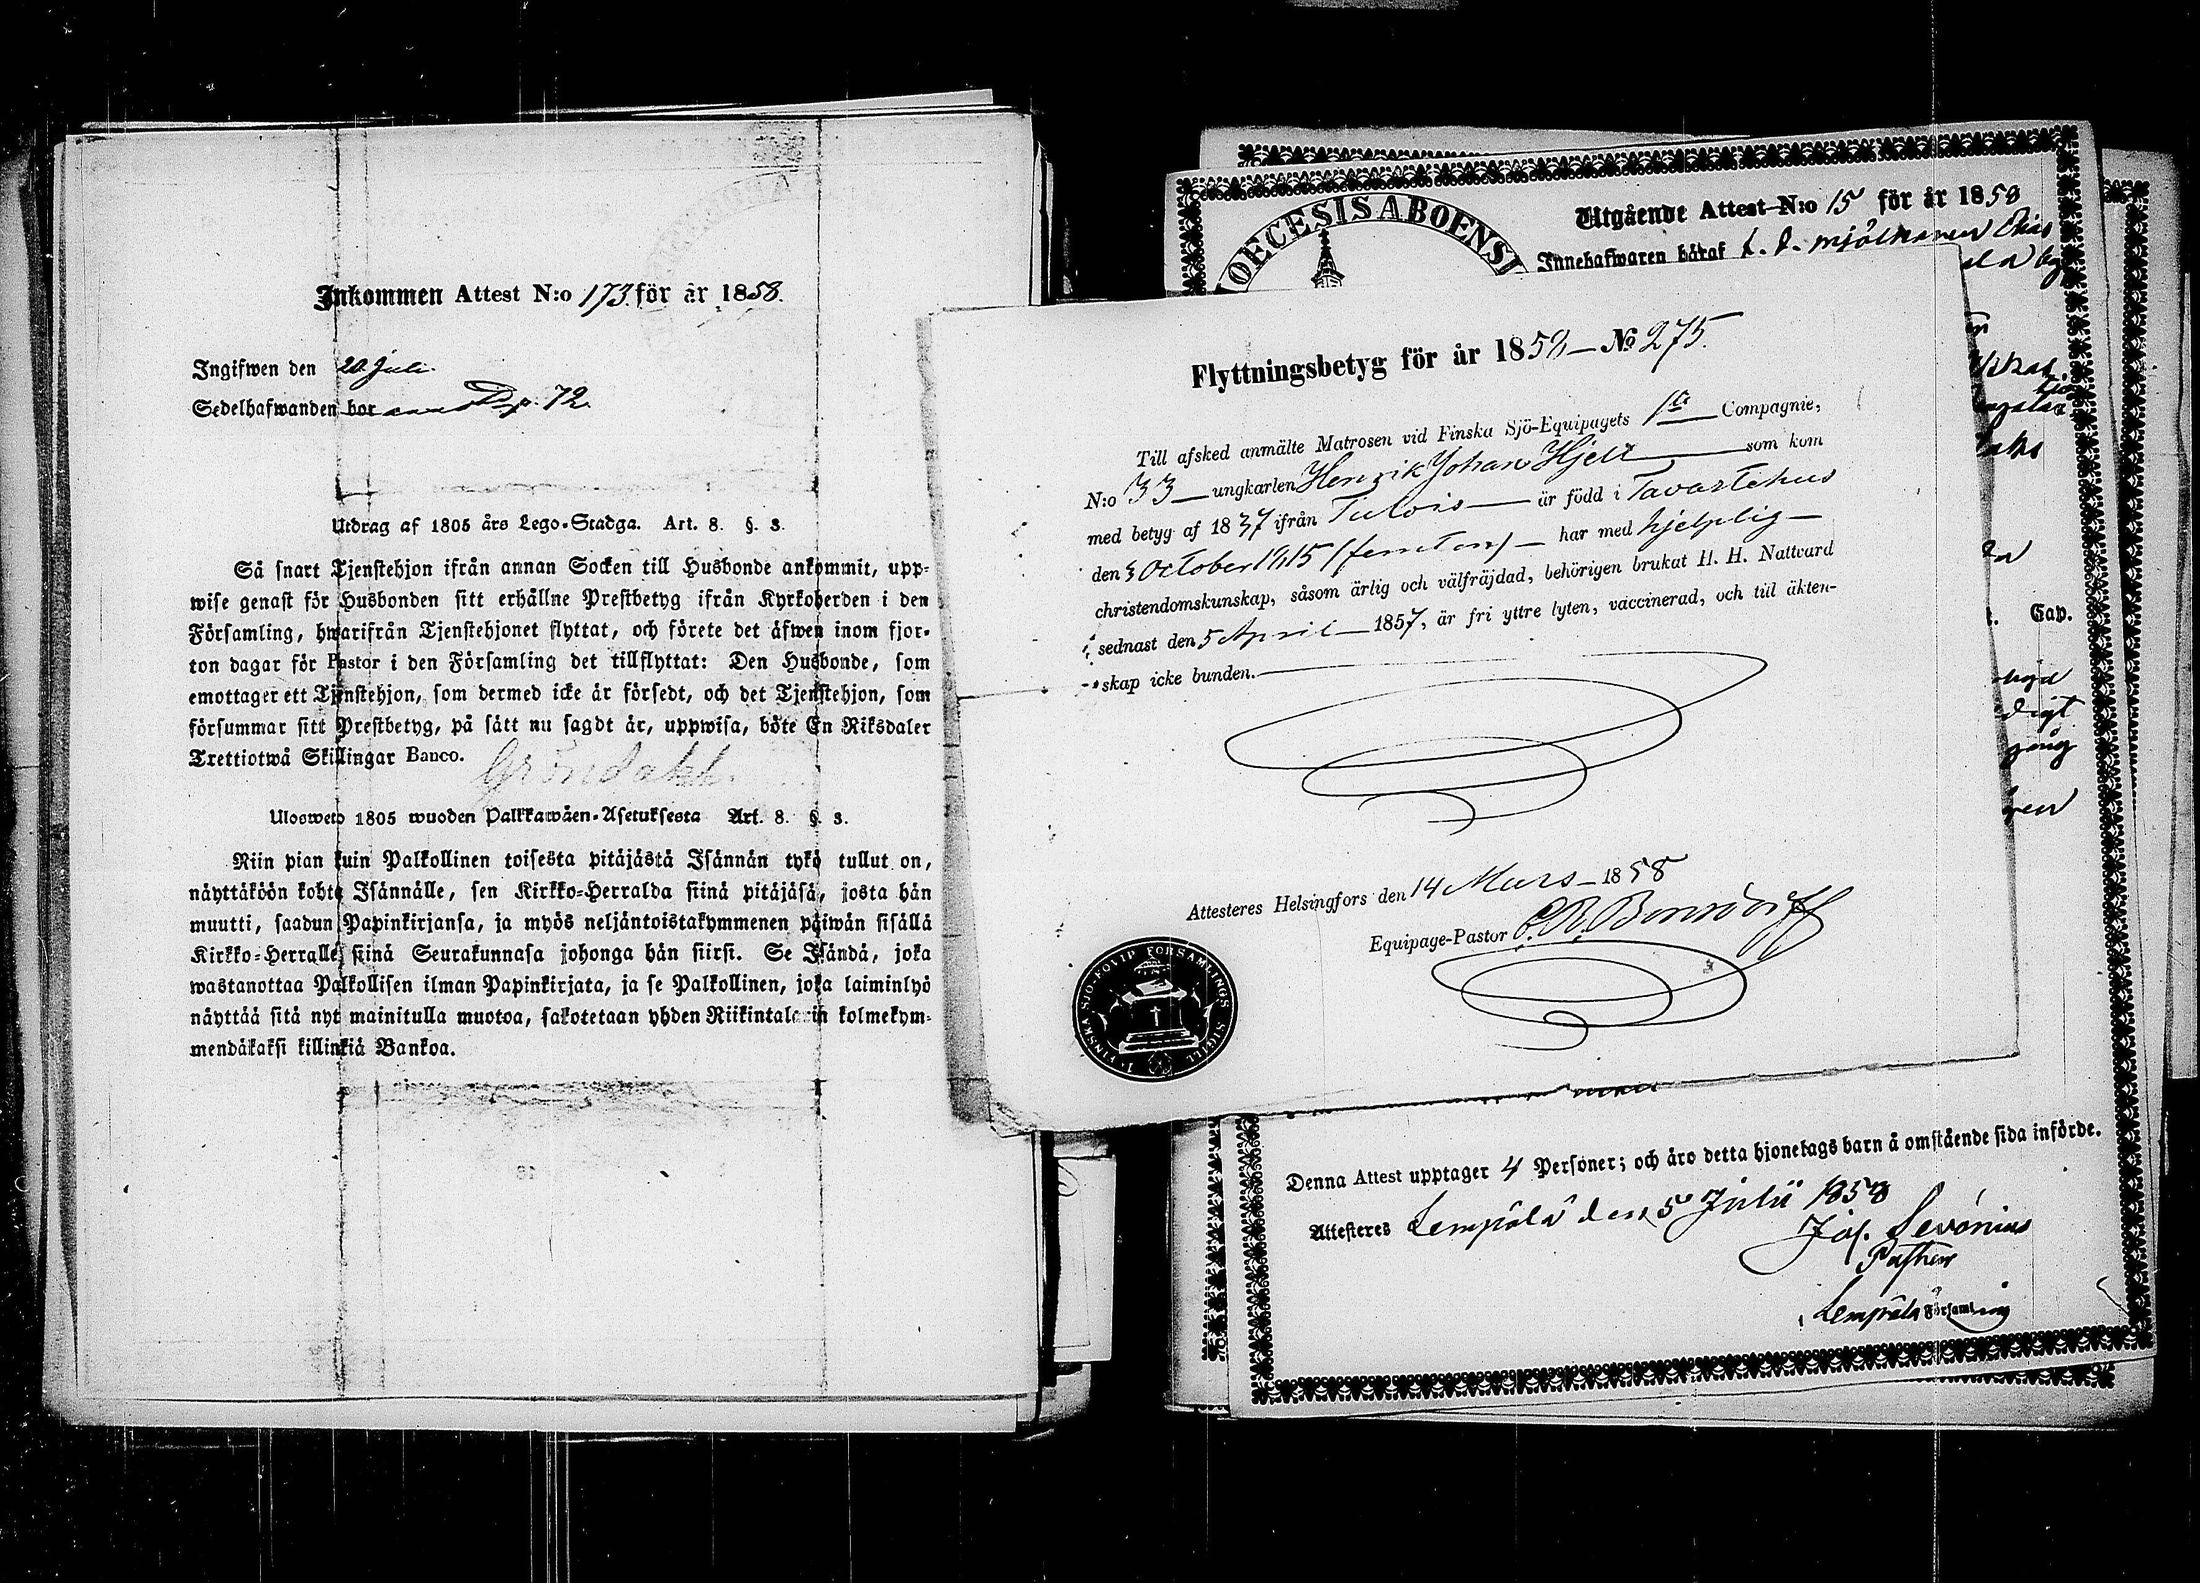 Inkommen Attest N:o 173 för år 1858.
Ingifwen den 20 Juli.
Sedelhafwanden bor p. 72.
Utdrag af 1805 års Lego-Stadga. Art. 8. §. 3.
Så snart Tjenstehjon ifrån annan Socken till Husbonde ankommit, upp-
wise genast för Husbonden sitt erhållne Prestbetyg ifrån Kyrkoherden i den
Församling, hwarifrån Tjenstehjonet flyttat, och förete det äfwen inom fjor-
ton dagar för Pastor i den Församling det tillflyttat: Den Husbonde, som
emottager ett Tjenstehjon, som dermed icke är försedt, och det Tjenstehjon, som
försummar sitt Prestbetyg, på sätt nu sagdt är, uppwisa, böte En Riksdaler
Trettiotwå Skillingar Banco.
Gröndahl.
Uloswetо 1805 wuoden Palkkawäen-Asetuksesta Art. 8. §. 3.
Niin pian kuin Palkollinen toisesta pitäjästä Isännän tykö tullut on,
näyttäköön kohta Isännälle, sen Kirkko-Herralda siinä pitäjäsä, josta hän
muutti, saadun Papinkirjansa, ja myös neljäntoistakymmenen päiwän sisällä
Kirkko-Herralle, siinä Seurakunnasa johonga hän siirsi. Se Isändä, joka
wastanottaa Palkollisen ilman Papinkirjata, ja se Palkollinen, joka laiminlyö
näyttää sitä nyt mainitulla muotoa, sakotetaan yhden Riikintalarin kolmekym-
mendäkaksi killinkiä Bankoa.
DIOECESIS ABOENSI
Utgående Attest N:o 15 för år 1858
Innehafwaren häraf
Flyttningsbetyg för år 1858 — No 275.
Till afsked anmälte Matrosen vid Finska Sjö-Equipagets 1sta Compagnie,
N:o 33 — ungkarlen Henrik Johan Hjelt — som kom
med betyg af 1837 ifrån Tulois — är född i Tavastehus
den 3 October 1815 (femton) — har med hjelplig —
christendomskunskap, såsom ärlig och välfräjdad, behörigen brukat H. H. Nattvard
sednast den 5 April — 1857, är fri yttre lyten, vaccinerad, och till äkten-
skap icke bunden.
Attesteres Helsingfors den 14 Mars — 1858
Equipage-Pastor C. R. Bonsdorff
FINSKA SJÖ-EQVIP. FÖRSAMLINGS SIGILL
Cap.
digt
gång
Denna Attest upptager 4 Personer; och äro detta hjonelags barn å omstående sida införde.
Attesteres Lempälä den 5 Julii 1858
Jos. Sevónius
Pastor
Lempälä Församling